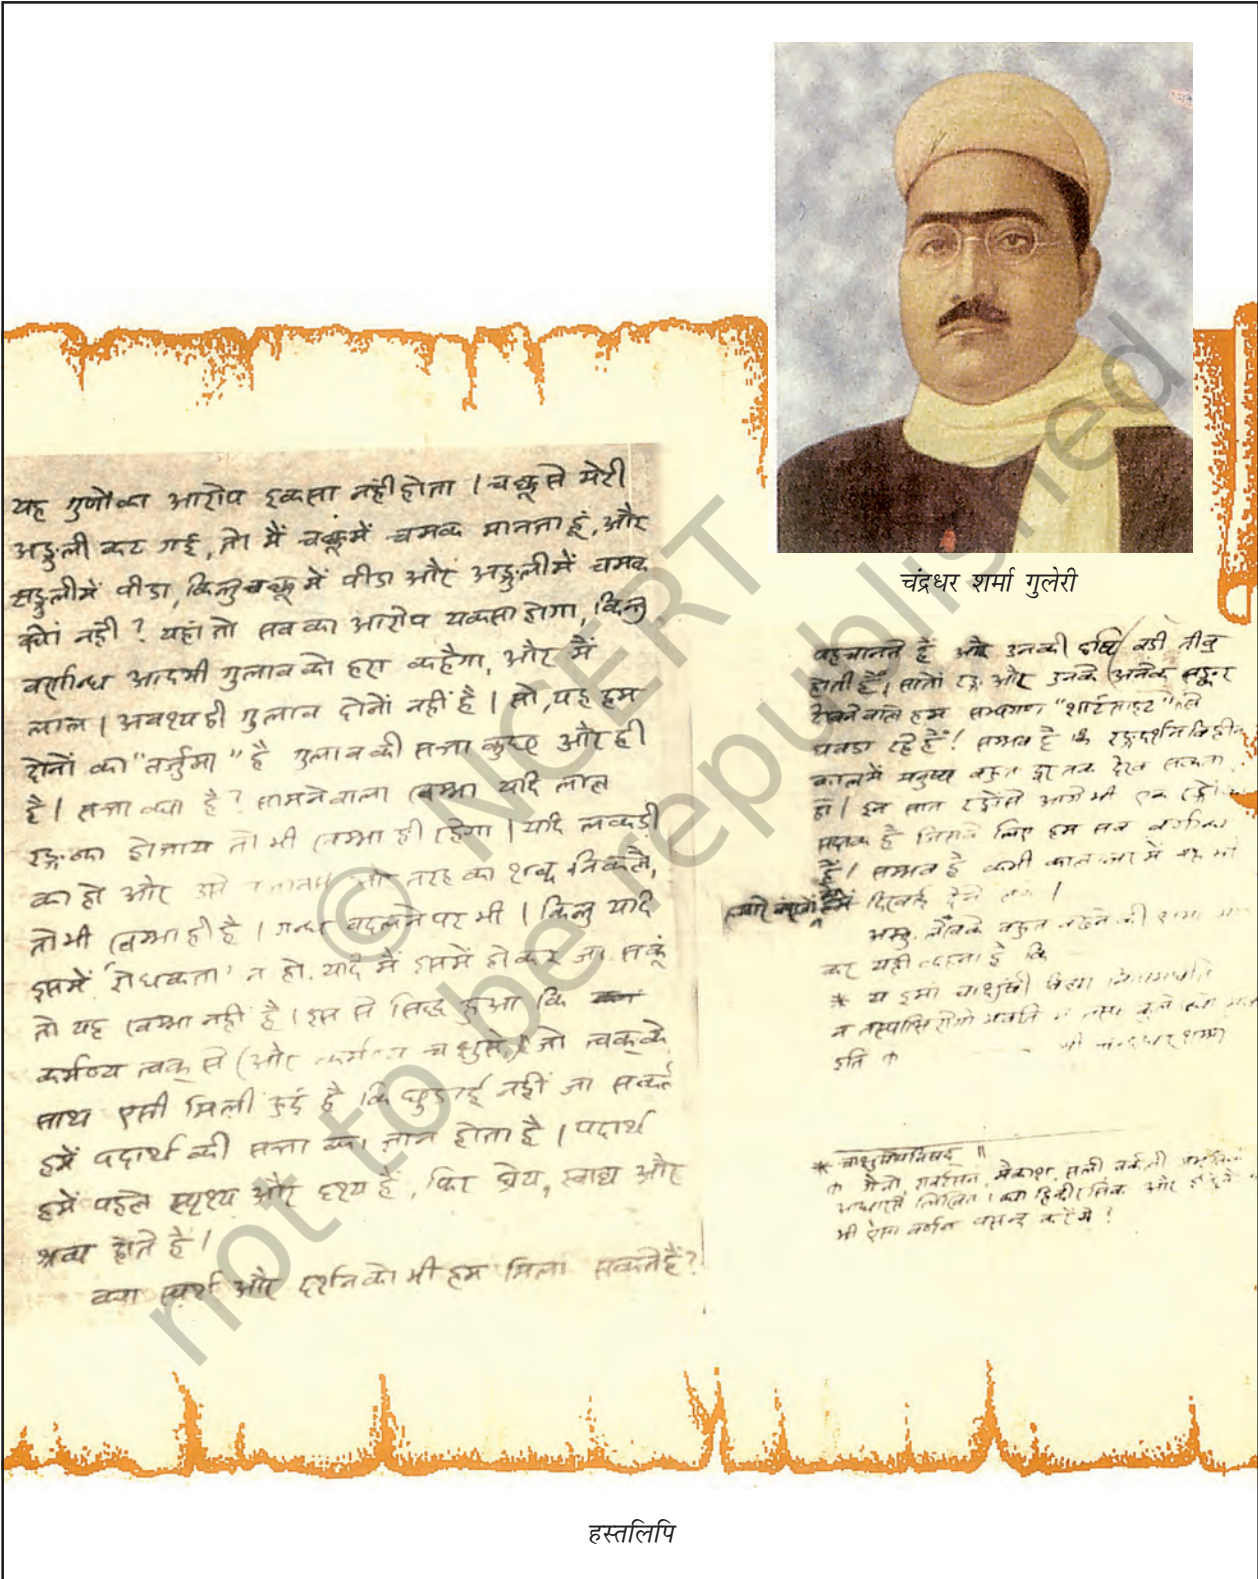 चंद्रधर शर्मा गुलेरी
यह गुणोंका आरोप इकसा नहीं होता । चक्कू से मेरी
अङ्गुली कट गई, तो मैं चक्कूमें चमक मानता हूं, और
अङ्गुलीमें पीडा, किन्तु चक्कू में पीडा और अङ्गुलीमें चमक
क्यों नहीं ? यहां तो सब का आरोप यकसा होगा, किन्तु
वर्णान्ध आदमी गुलाब को हरा कहैगा, और मैं
लाल । अवश्य ही गुलाब दोनों नहीं है । सो, यह हम
दोनों का "तर्जुमा" है गुलाब की सत्ता कुछ और ही
है । सत्ता क्या है ? सामने वाला खम्भा यदि लाल
रङ्ग का होजाय तो भी खम्भा ही रहेगा । यदि लकड़ी
का हो और उसे तरह का शब्द निकले,
तो भी खम्भा ही है । गन्ध बदलने पर भी । किन्तु यदि
इसमें 'रोधकता' न हो, यदि मैं इसमें हो कर जा सकूं
तो यह खम्भा नहीं है । इस से सिद्ध हुआ कि
कर्मण्य त्वक् से (और कर्मण्य चक्षुसे,) जो त्वक् के
साथ एसी मिली हुई है कि छुडाई नहीं जा सकती
हमें पदार्थ की सत्ता का ज्ञान होता है । पदार्थ
हमें पहले स्पृश्य और दृश्य हैं, फिर घ्रेय, स्वाद्य और
श्रव्य होते हैं ।
क्या स्पर्श और दर्शन को भी हम मिला सकते हैं ?
पहचानते हैं और उनकी दृष्टि बडी तीव्र
होती है । सातों रङ्ग और उनके अनेक सङ्कर
देखने वाले हम सभ्यगण "शार्टसाइट" से
घबडा रहे हैं ! सम्भव है कि रङ्गदर्शन विहीन
काल में मनुष्य बहुत दूर तक देख सकता
हो । इन सात रङ्गोंसे आगे भी एक
है जिसके लिए हम सब
हैं । सम्भव है कभी कालान्तर में वह भी
हमें दिखाई देने लगे ।
अस्तु, बहुत की क्षमा
कर यही कहना है कि
* य इमां चाक्षुषीं विद्यां
न तस्याक्षिरोगो भवति न तस्य कुले
इति
श्री चन्द्रधर शर्मा
* चाक्षुषोपनिषद् ॥
लिखित । क्या हिन्दी रसिक और
भी ऐसा वर्णन पसन्द करेंगे ?
हस्तलिपि
© NCERT
not to be republished